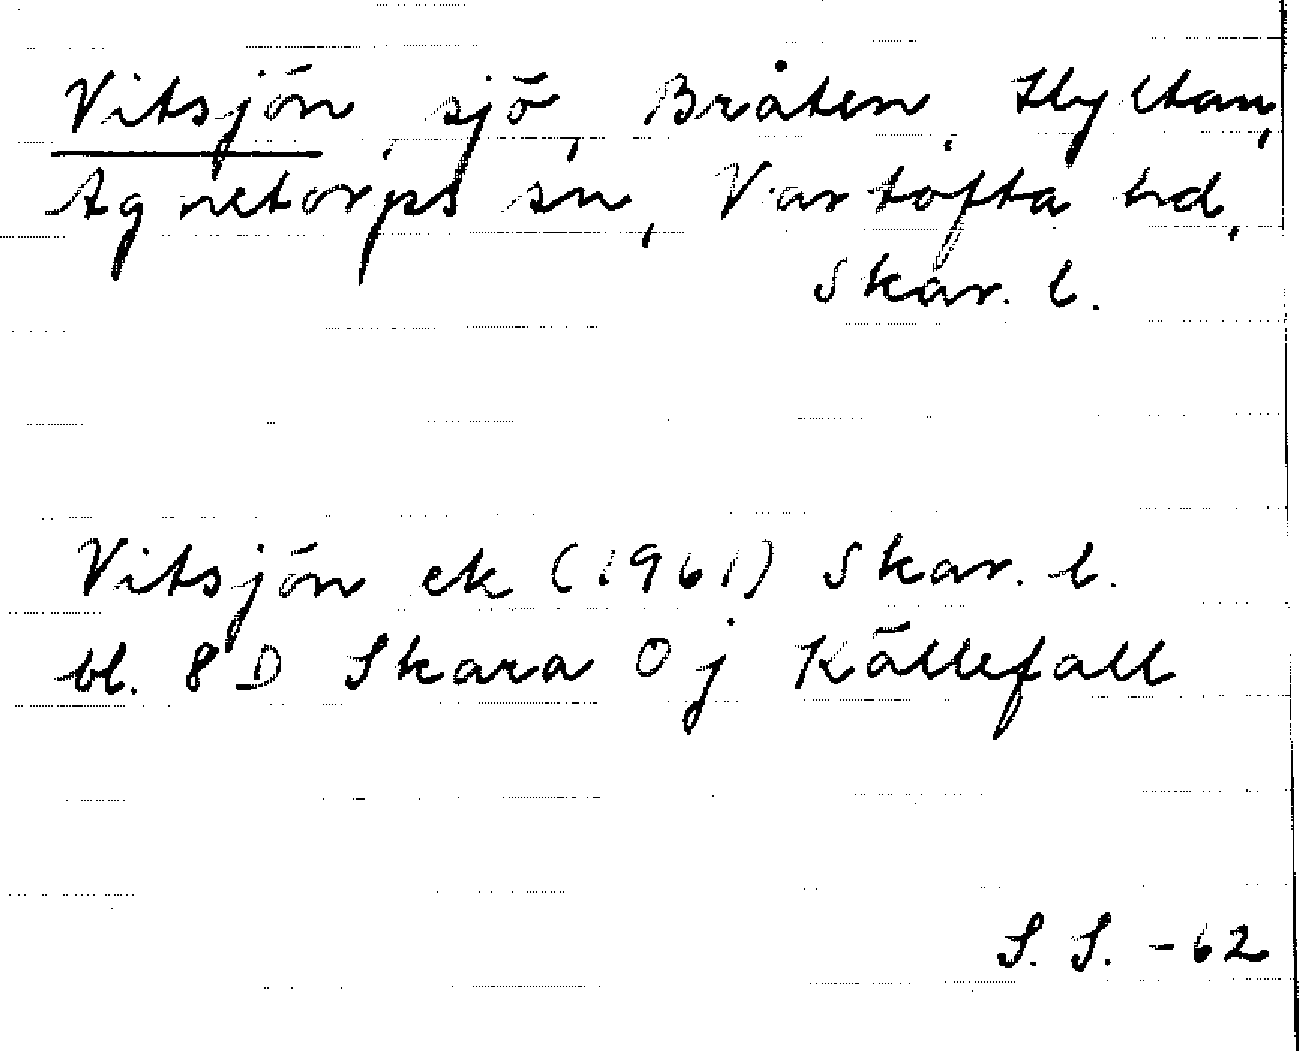 Vitsjön, sjö, Bråten, Hyltan,
Agnetorps sn, Vartofta hd,
Skar. l.
Vitsjön ek (1961) Skar. l.
bl. 8 D Skara 0 j Källefall
S. S. -62